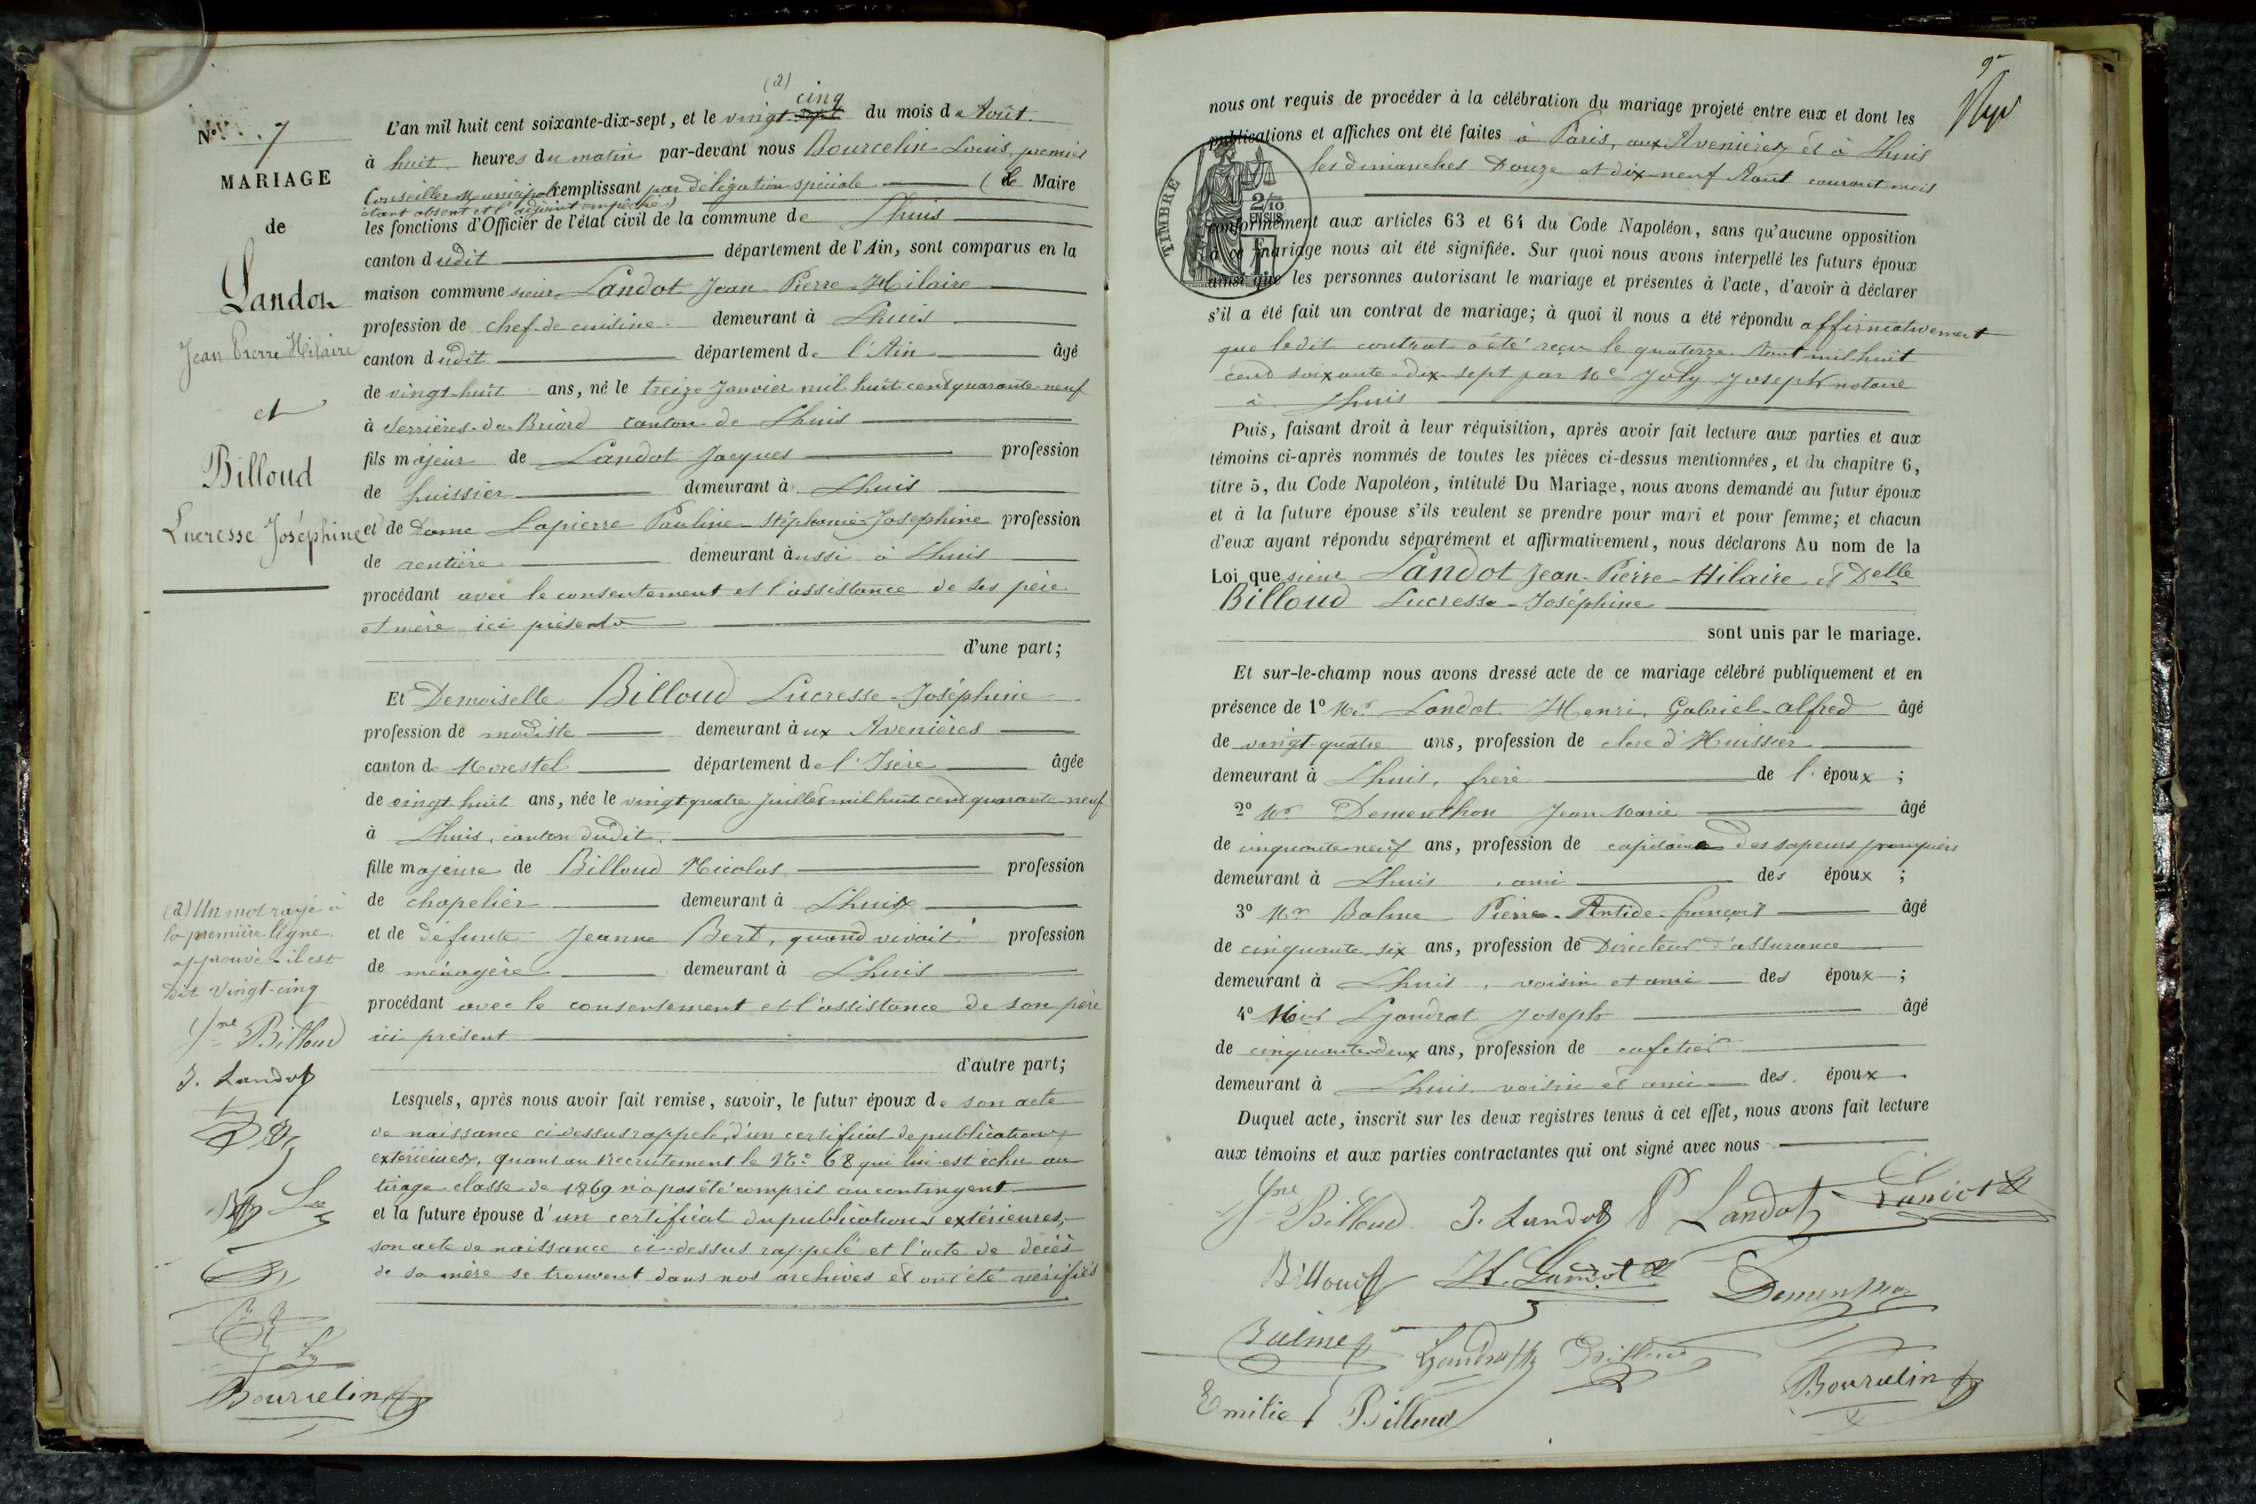 N° 7
MARIAGE
de
Landot
Jean Pierre Hilaire
et
Billoud
Lucresse Joséphine
(a) Un mot rayé à
la première ligne
approuvé il est
dit vingt-cinq
Jne Billoud
J. Landot
Bourcelin
(a)
cinq
L'an mil huit cent soixante-dix-sept, et le vingt-sept du mois de Août
à huit heures du matin par-devant nous Bourcelin Louis, premier
Conseiller Municipal remplissant par délégation spéciale (le Maire
étant absent et l'adjoint empêché)
les fonctions d'Officier de l'état civil de la commune de Lhuis
canton dudit département de l'Ain, sont comparus en la
maison commune sieur Landot Jean-Pierre-Hilaire
profession de chef de cuisine demeurant à Lhuis
canton dudit département de l'Ain âgé
de vingt-huit ans, né le treize Janvier mil huit cent quarante-neuf
à Serrières-de-Briord canton de Lhuis
fils majeur de Landot Jacques profession
de huissier demeurant à Lhuis
et de Dame Lapierre Pauline-Stéphanie-Josephine profession
de rentière demeurant aussi à Lhuis
procédant avec le consentement et l'assistance de ses père
et mère ici présents
d'une part;
Et Demoiselle Billoud Lucresse-Joséphine
profession de modiste demeurant aux Avenières
canton de Morestel département de l'Isère âgée
de vingt huit ans, née le vingt quatre Juillet mil huit cent quarante-neuf
à Lhuis, canton dudit
fille majeure de Billoud Nicolas profession
de chapelier demeurant à Lhuis
et de défunte Jeanne Bert, quand vivait profession
de ménagère demeurant à Lhuis
procédant avec le consentement et l'assistance de son père
ici présent
d'autre part;
Lesquels, après nous avoir fait remise, savoir, le futur époux de son acte
de naissance ci-dessus rappelé, d'un certificat de publications
extérieures, quant au recrutement le N° 68 qui lui est échu au
tirage classe de 1869 n'a pas été compris au contingent
et la future épouse d'un certificat du publications extérieures,
son acte de naissance ci-dessus rappelé et l'acte de décès
de sa mère se trouvent dans nos archives et ont été vérifiés
nous ont requis de procéder à la célébration du mariage projeté entre eux et dont les
publications et affiches ont été faites à Paris, aux Avenières et à Lhuis
les dimanches Douze et dix-neuf Août courant mois
TIMBRE
2/10
EN SUS
conformément aux articles 63 et 64 du Code Napoléon, sans qu'aucune opposition
à ce mariage nous ait été signifiée. Sur quoi nous avons interpellé les futurs époux
ainsi que les personnes autorisant le mariage et présentes à l'acte, d'avoir à déclarer
s'il a été fait un contrat de mariage; à quoi il nous a été répondu affirmativement
que ledit contrat a été reçu le quatorze Août mil huit
cent soixante-dix-sept par Me Joly Joseph notaire
à Lhuis
Puis, faisant droit à leur réquisition, après avoir fait lecture aux parties et aux
témoins ci-après nommés de toutes les pièces ci-dessus mentionnées, et du chapitre 6,
titre 5, du Code Napoléon, intitulé Du Mariage, nous avons demandé au futur époux
et à la future épouse s'ils veulent se prendre pour mari et pour femme; et chacun
d'eux ayant répondu séparément et affirmativement, nous déclarons Au nom de la
Loi que sieur Landot Jean-Pierre-Hilaire et Delle
Billoud Lucresse-Joséphine
sont unis par le mariage.
Et sur-le-champ nous avons dressé acte de ce mariage célébré publiquement et en
présence de 1° Mr Landot Henri, Gabriel-alfred âgé
de vingt-quatre ans, profession de clerc d'Huissier
demeurant à Lhuis, frère de l'époux;
2° Mr Dementhon Jean Marie âgé
de cinquante neuf ans, profession de capitaine des sapeurs pompiers
demeurant à Lhuis, ami des époux;
3° Mr Balme Pierre-Antide-françois âgé
de cinquante six ans, profession de Directeur d'assurance
demeurant à Lhuis, voisin et ami des époux;
4° Mr Gandrat Joseph âgé
de cinquante deux ans, profession de cafetier
demeurant à Lhuis voisin et ami des époux
Duquel acte, inscrit sur les deux registres tenus à cet effet, nous avons fait lecture
aux témoins et aux parties contractantes qui ont signé avec nous
Jne Billoud J. Landot P Landot
Billoud H. Landot Dementhon
Balme Billoud
Emilie Billoud Bourcelin